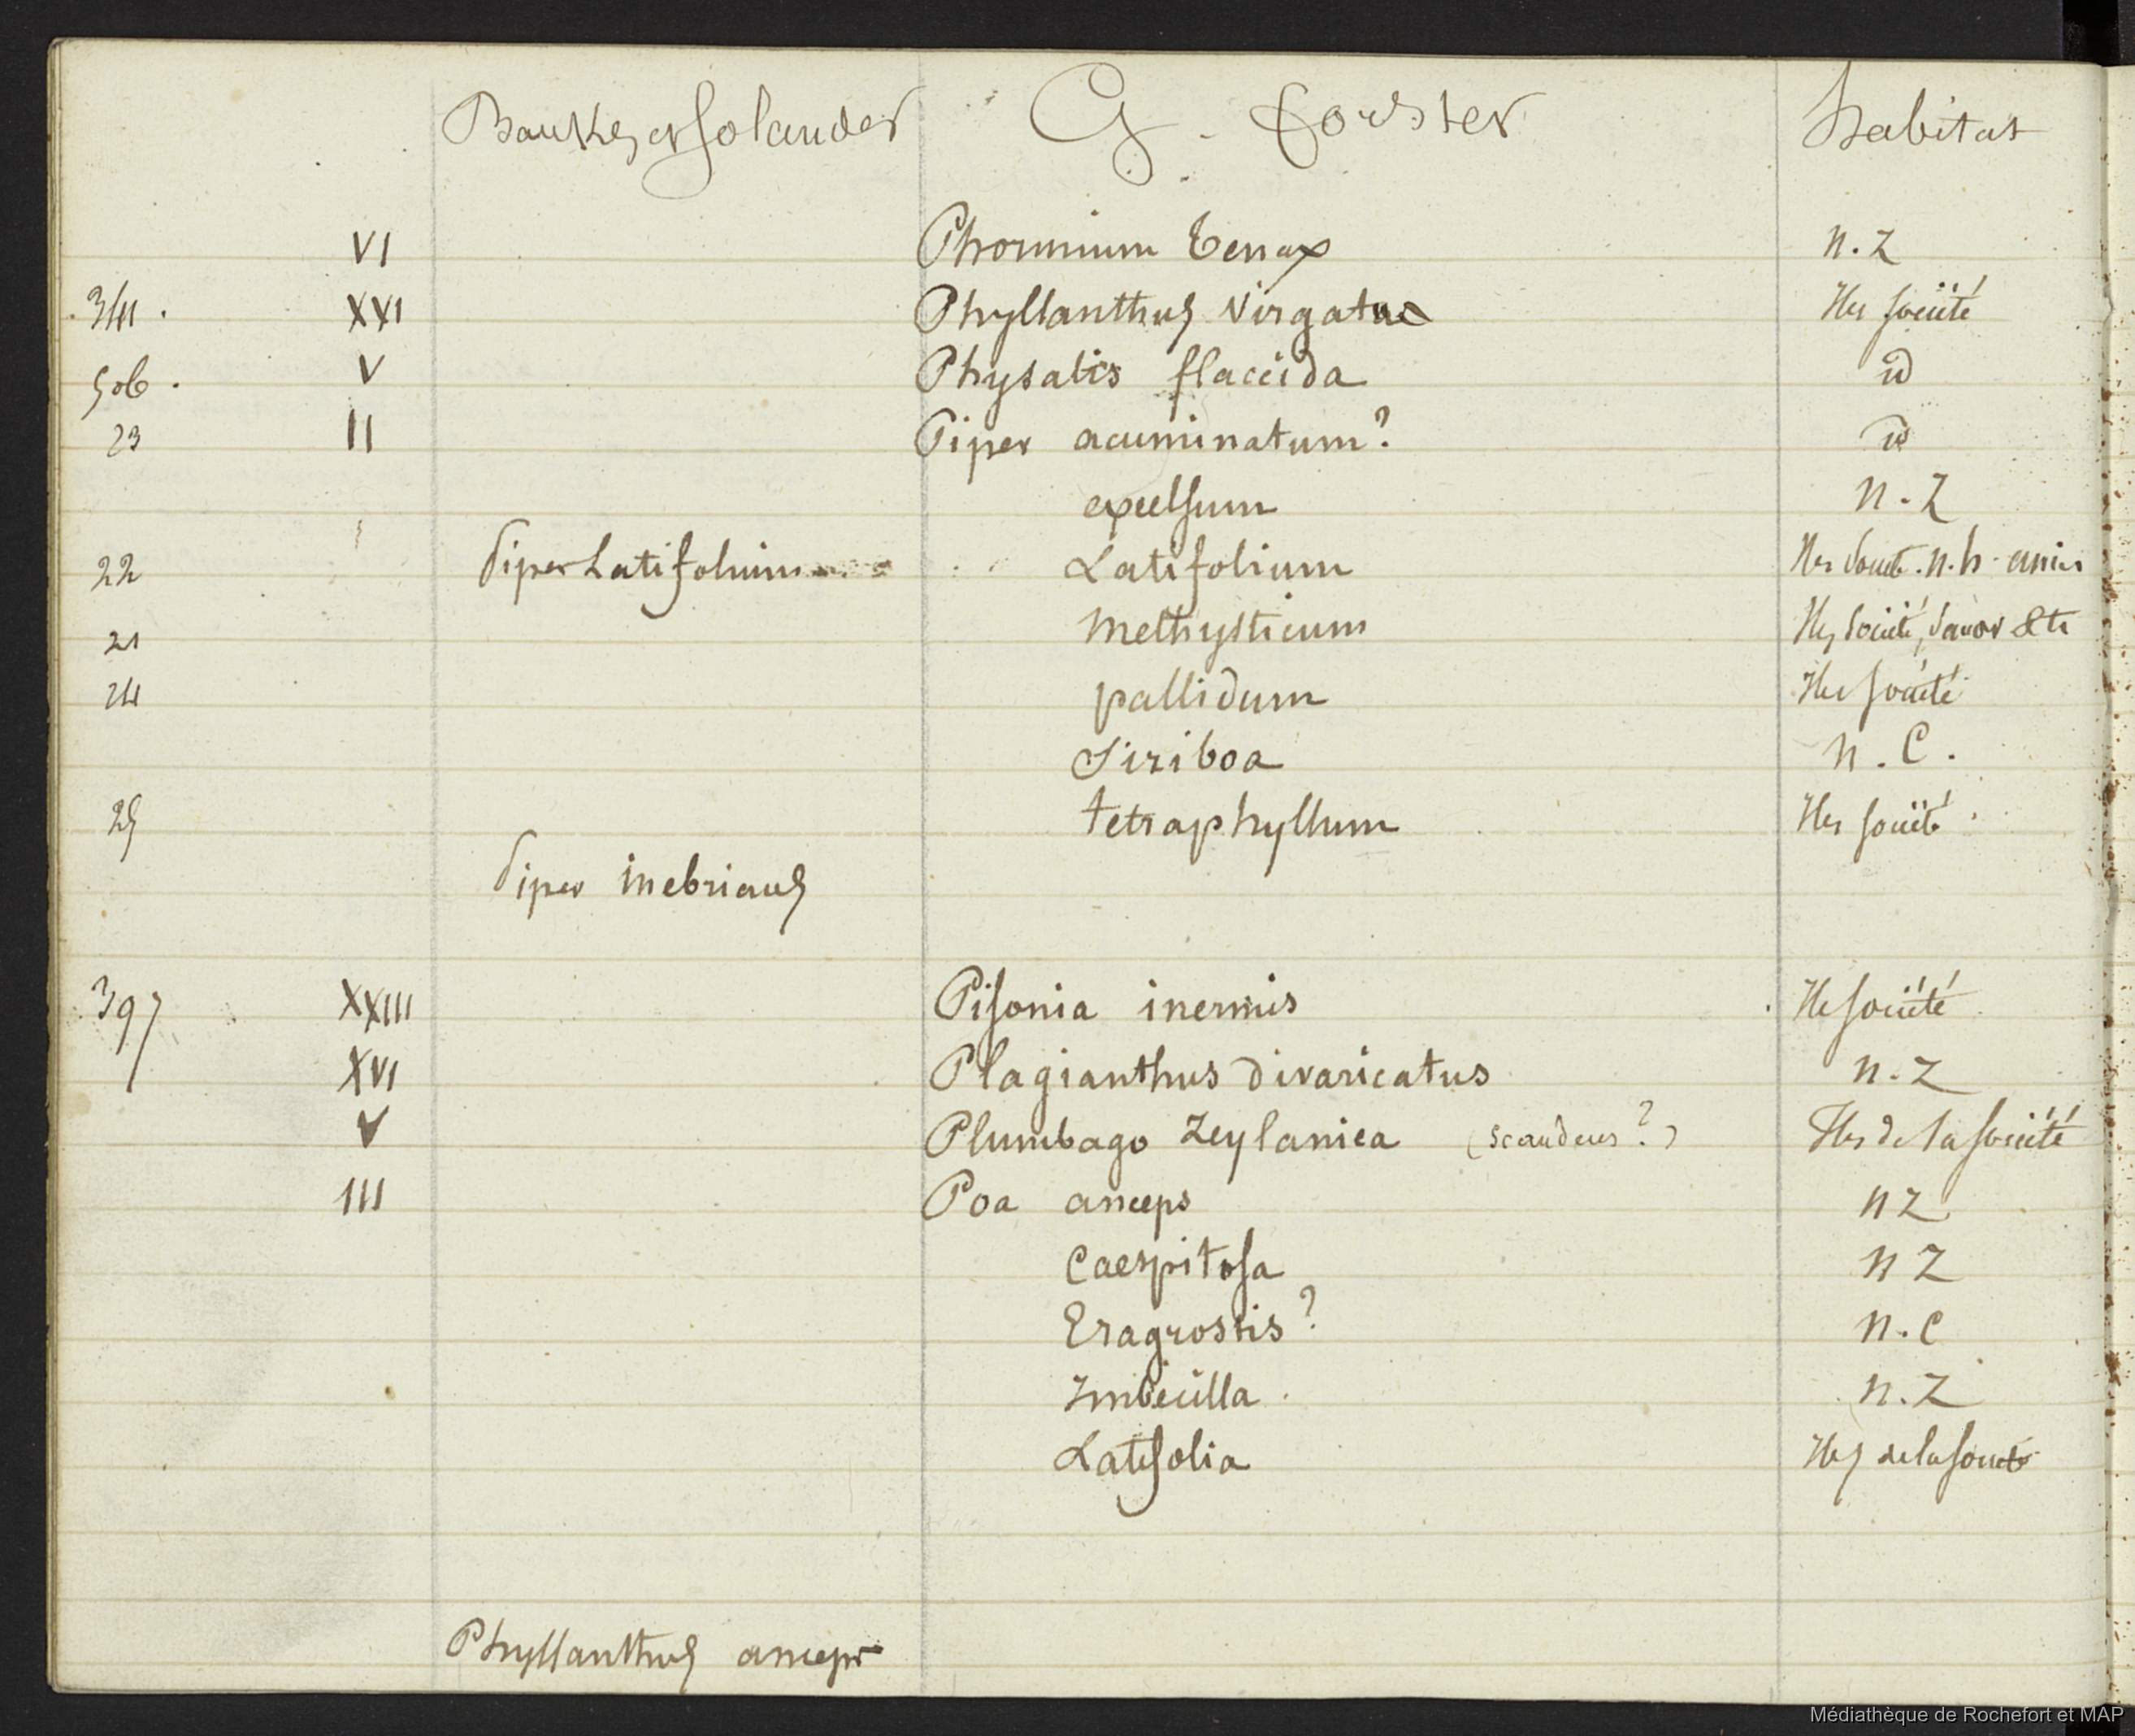 Banks et Solander G. Forster habitat
VI Phormium tenax n.Z
344. XXI Phyllanthus Virgatus Iles société
506. V Physalis flaccida id
23 II Piper acuminatum? id
excelsum n.Z
22 Piper Latifolium Latifolium Iles Société. n.h.
21 Methysticum Iles Société,
24 pallidum Iles société
Siriboa n.C.
25 tetraphyllum Iles société
Piper inebrians
397 XXIII Pisonia inermis Iles société
XVI Plagianthus divaricatus n.Z
V Plumbago Zeylanica (scandens?) Iles de la société
III Poa anceps n Z
Caespitosa n Z
Eragrostis? n.C
Imbecilla n.Z
Latifolia Iles de la société
Phyllanthus anceps
Médiathèque de Rochefort et MAP